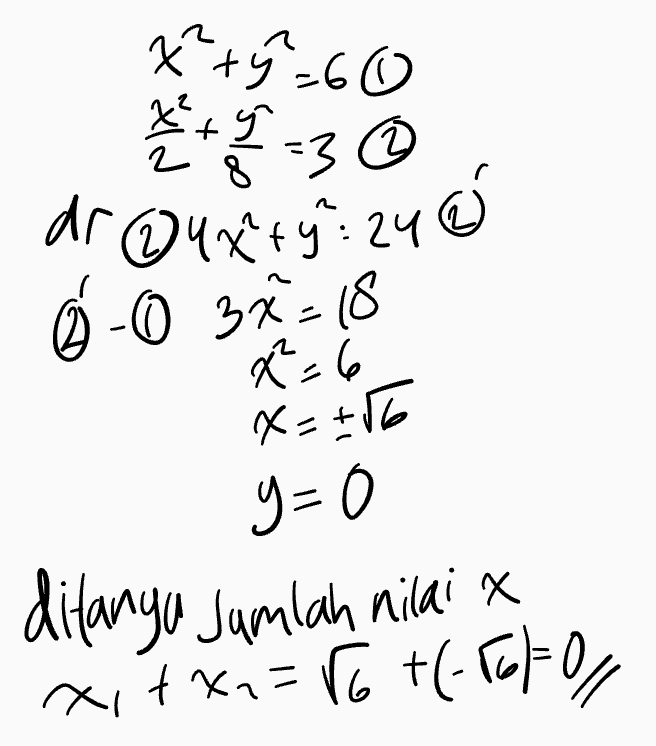 x² + y² = 6 ①
x²/2 + y²/8 = 3 ②
dr ② 4x² + y² = 24 ②'
②' - ① 3x² = 18
x² = 6
x = ±√6
y = 0
ditanya Jumlah nilai x
x₁ + x₂ = √6 + (-√6) = 0 //